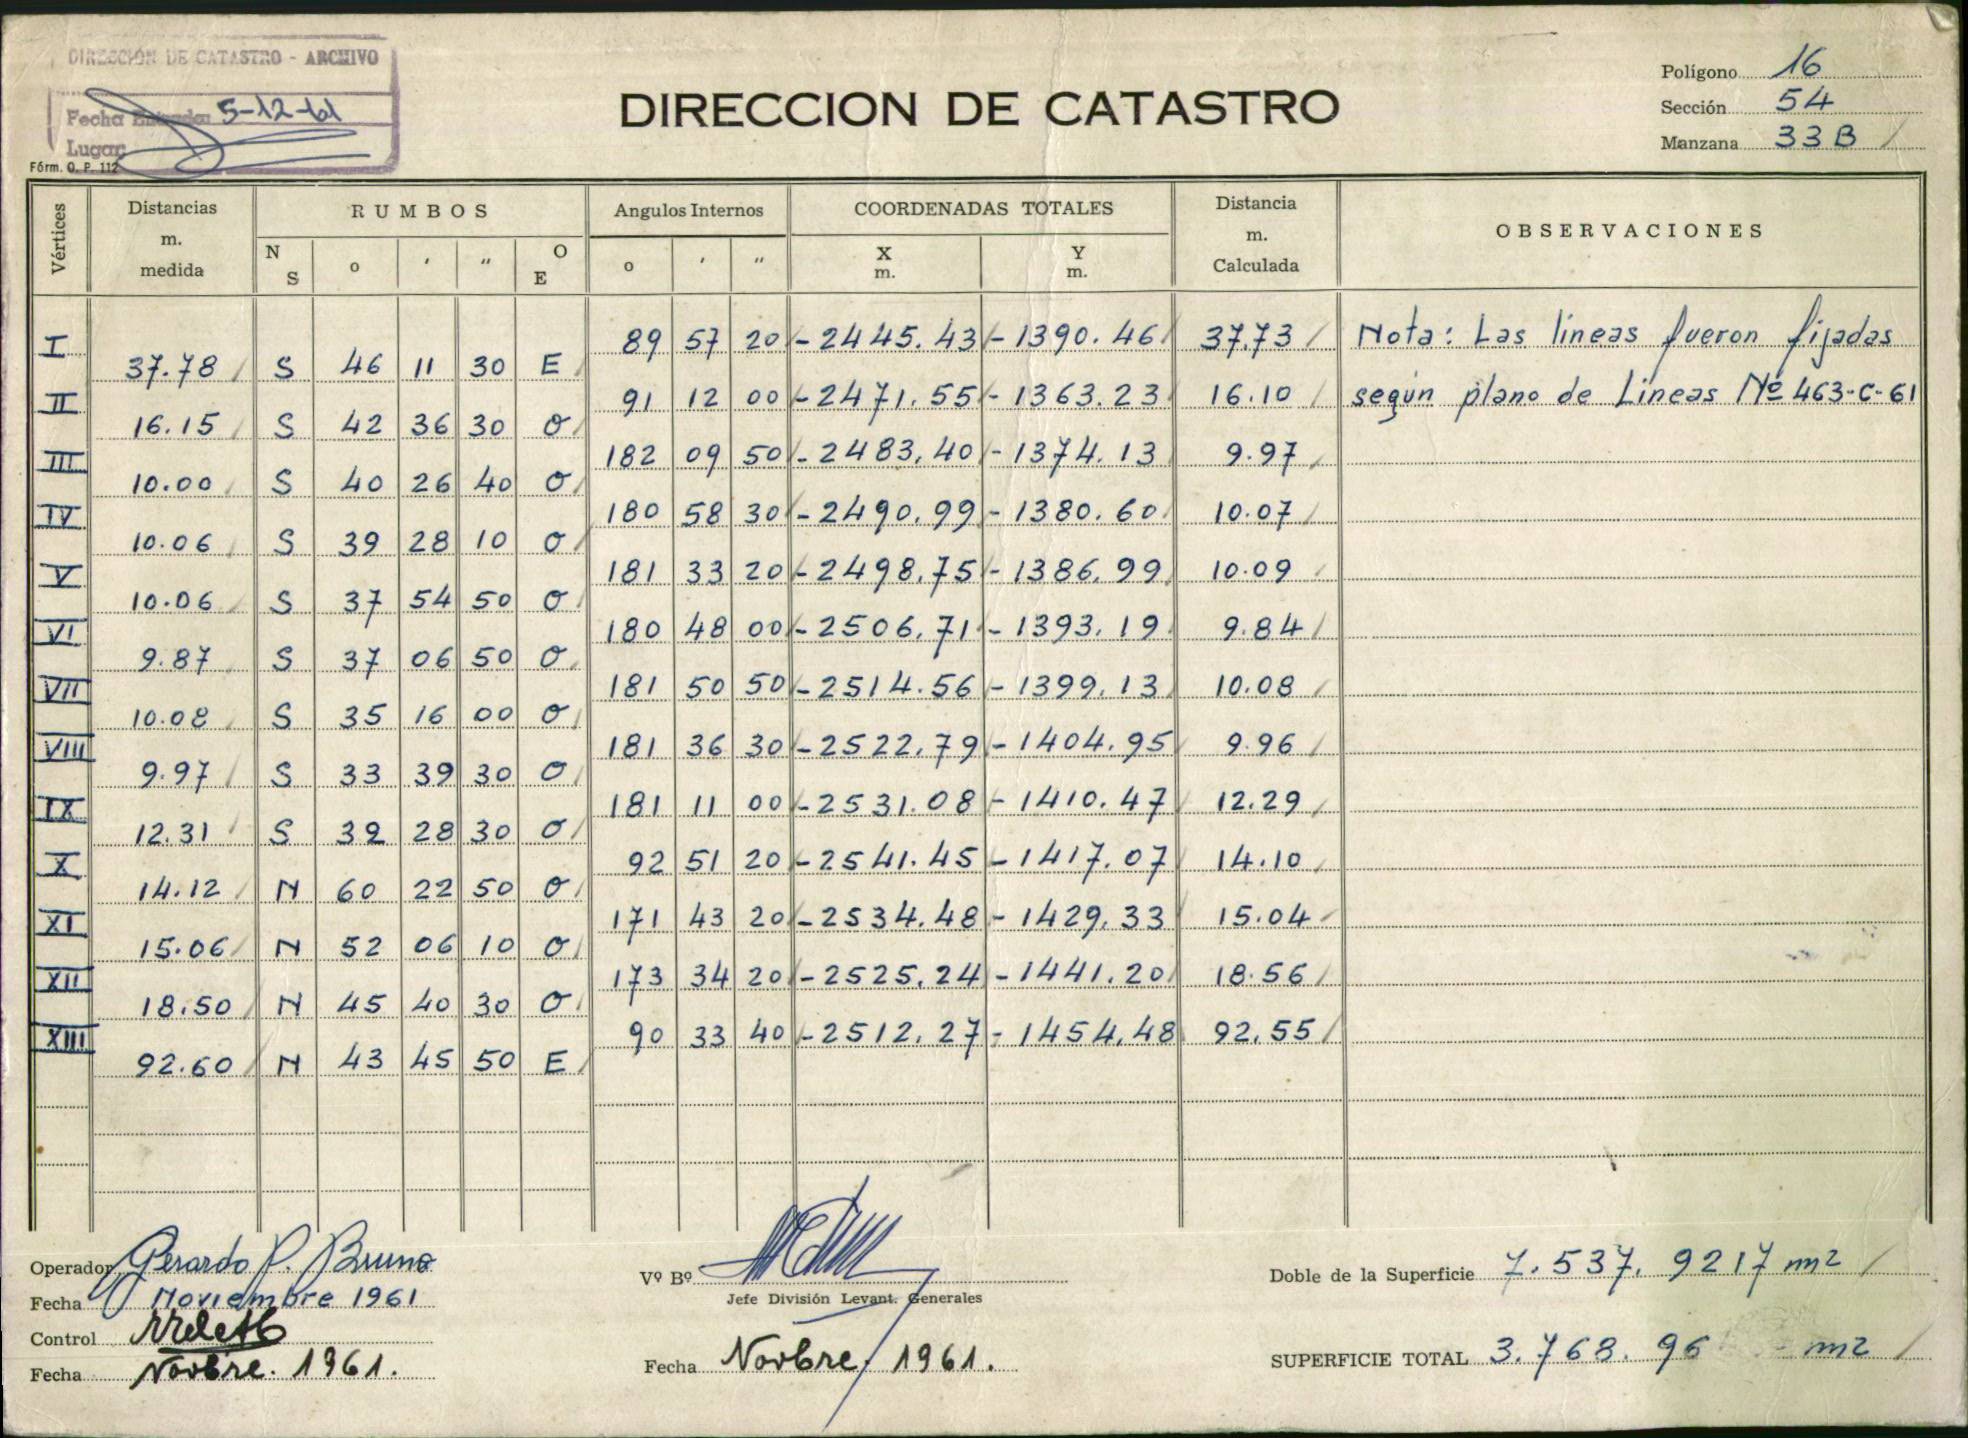 DIRECCIÓN DE CATASTRO - ARCHIVO
Fecha Entrada: 5-12-61
Lugar:
Fórm. O. P. 112
DIRECCION DE CATASTRO
Polígono 16
Sección 54
Manzana 33 B
Vértices Distancias m. medida RUMBOS Angulos Internos COORDENADAS TOTALES Distancia m. Calculada OBSERVACIONES
N S o ′ ″ O E o ′ ″ X m. Y m.
I 89 57 20 -2445.43 -1390.46 37.73 Nota: Las líneas fueron fijadas
37.78 S 46 11 30 E
II 91 12 00 -2471.55 -1363.23 16.10 según plano de Líneas Nº 463-C-61
16.15 S 42 36 30 O
III 182 09 50 -2483.40 -1374.13 9.97
10.00 S 40 26 40 O
IV 180 58 30 -2490.99 -1380.60 10.07
10.06 S 39 28 10 O
V 181 33 20 -2498.75 -1386.99 10.09
10.06 S 37 54 50 O
VI 180 48 00 -2506.71 -1393.19 9.84
9.87 S 37 06 50 O
VII 181 50 50 -2514.56 -1399.13 10.08
10.08 S 35 16 00 O
VIII 181 36 30 -2522.79 -1404.95 9.96
9.97 S 33 39 30 O
IX 181 11 00 -2531.08 -1410.47 12.29
12.31 S 32 28 30 O
X 92 51 20 -2541.45 -1417.07 14.10
14.12 N 60 22 50 O
XI 171 43 20 -2534.48 -1429.33 15.04
15.06 N 52 06 10 O
XII 173 34 20 -2525.24 -1441.20 18.56
18.50 N 45 40 30 O
XIII 90 33 40 -2512.27 -1454.48 92.55
92.60 N 43 45 50 E
Operador Gerardo P. Bruno
Fecha Noviembre 1961
Control
Fecha Novbre. 1961.
Vº Bº
Jefe División Levant. Generales
Fecha Novbre. 1961.
Doble de la Superficie 7.537.9217 m2
SUPERFICIE TOTAL 3.768.96 m2